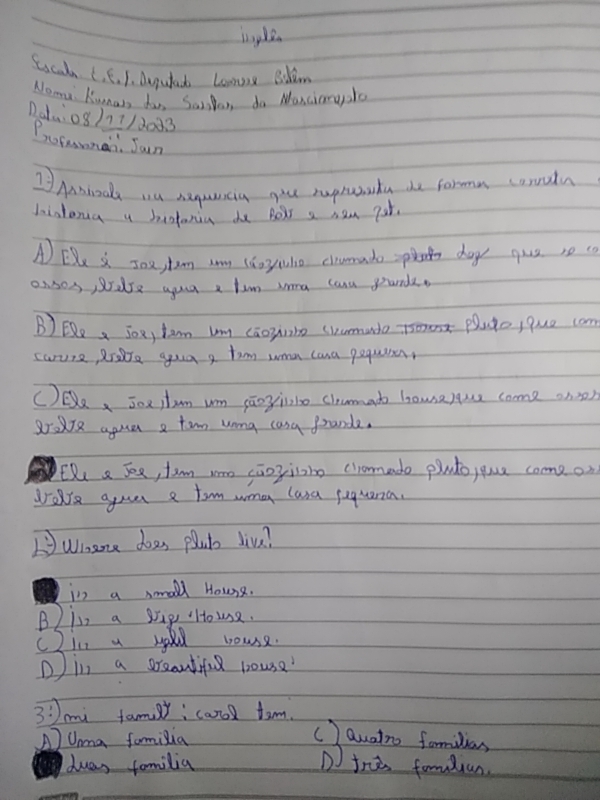 inglês
Escola E.E.I. Deputado
Nome: dos Santos do Nascimento
Data: 08/11/2023
Professora:
1º) Assinale na sequencia que representa de forma correta a
historia a historia de Bob e seu pet.
A) Ele é Joe, tem um cãozinho chamado dog que se co
osses, bebe agua e tem uma casa grande.
B) Ele e Joe, tem um cãozinho chamado pluto, que com
carne, bebe agua e tem uma casa pequena.
C) Ele e Joe, tem um çãozinho chamado house, que come osses
bebe agua e tem uma casa grande.
Ele e Joe, tem um çãozinho chamado pluto, que come os
bebe agua e tem uma casa pequena.
2º) Where does pluto live?
in a small House.
B) in a big House.
C) in a house.
D) in a beautiful house
3º) mi famely: carol tem.
A) Uma familia C) Quatro familias
duas familia D) três familias.